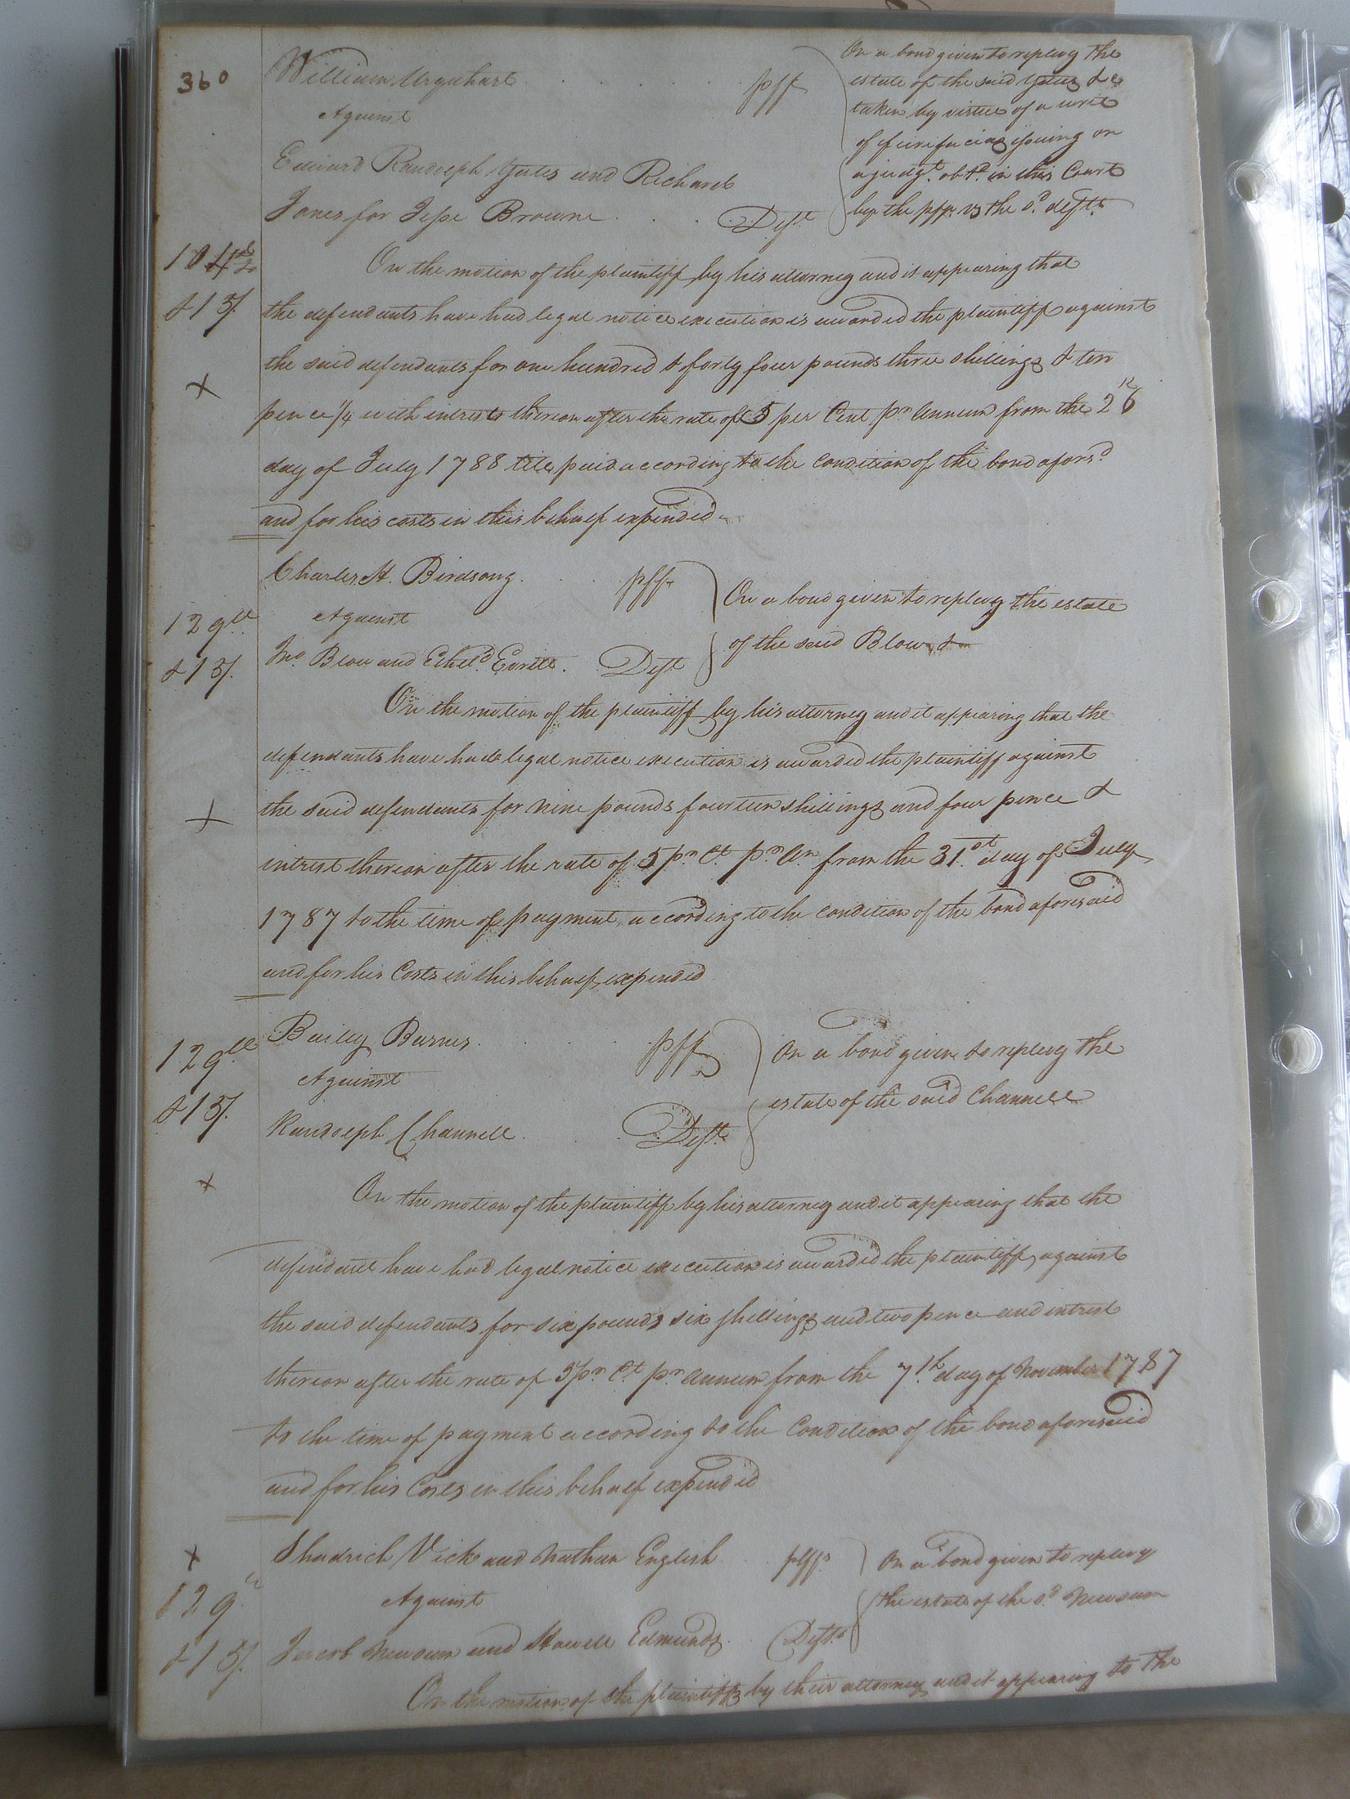 360
William Urquhart pff
Against
Edward Randolph Yates and Richard
Jones for Jesse Browne Deft
On a bond given to replevy the
estate of the said Yates &c
taken by virtue of a writ
of fierefacias issuing on
a judgt. obtd. in this Court
by the pff vs the sd. defts
& 15/.
On the motion of the plaintiff by his attorney and it appearing that
the defendants have had legal notice execution is awarded the plaintiff against
the said defendants for one hundred & forty four pounds three shillings & ten
pence 1/4 with interest thereon after the rate of 5 per Cent pr Annum from the 26th
day of July 1788 till paid according to the condition of the bond aforsd.
and for his costs in this behalf expended
Charles H. Birdsong. pff
Against
Jno. Blow and Etheld. Evritt. Deft
On a bond given to replevy the estate
of the said Blow &
129ll
& 15/.
On the motion of the plaintiff by his attorney and it appearing that the
defendants have had legal notice execution is awarded the plaintiff against
the said defendants for nine pounds fourteen shillings and four pence &
intrest thereon after the rate of 5 pr Ct. pr An from the 31st. day of July
1787 to the time of payment according to the condition of the bond aforesaid
and for his Costs in this behalf expended
Bailey Barnes. pff
Against
Randolph Channell Deft.
On a bond given to replevy the
estate of the said Channell
129ll
& 15/.
On the motion of the plaintiff by his attorney and it appearing that the
defendant have had legal notice execution is awarded the plaintiff against
the said defendants for six pounds six shillings and two pence and intrest
thereon after the rate of 5 pr Ct pr Annum from the 7th. day of November 1787
to the time of payment according to the Condition of the bond aforesaid
and for his Costs in this behalf expended
Shadrich Vick and Nathan English plffs
Against
Jacob Newsum and Howell Edmunds. Defts.
On a bond given to replevy
the estate of the sd. Newsum
129ll
& 15/.
On the motion of the plaintiffs by their attorney and it appearing to the